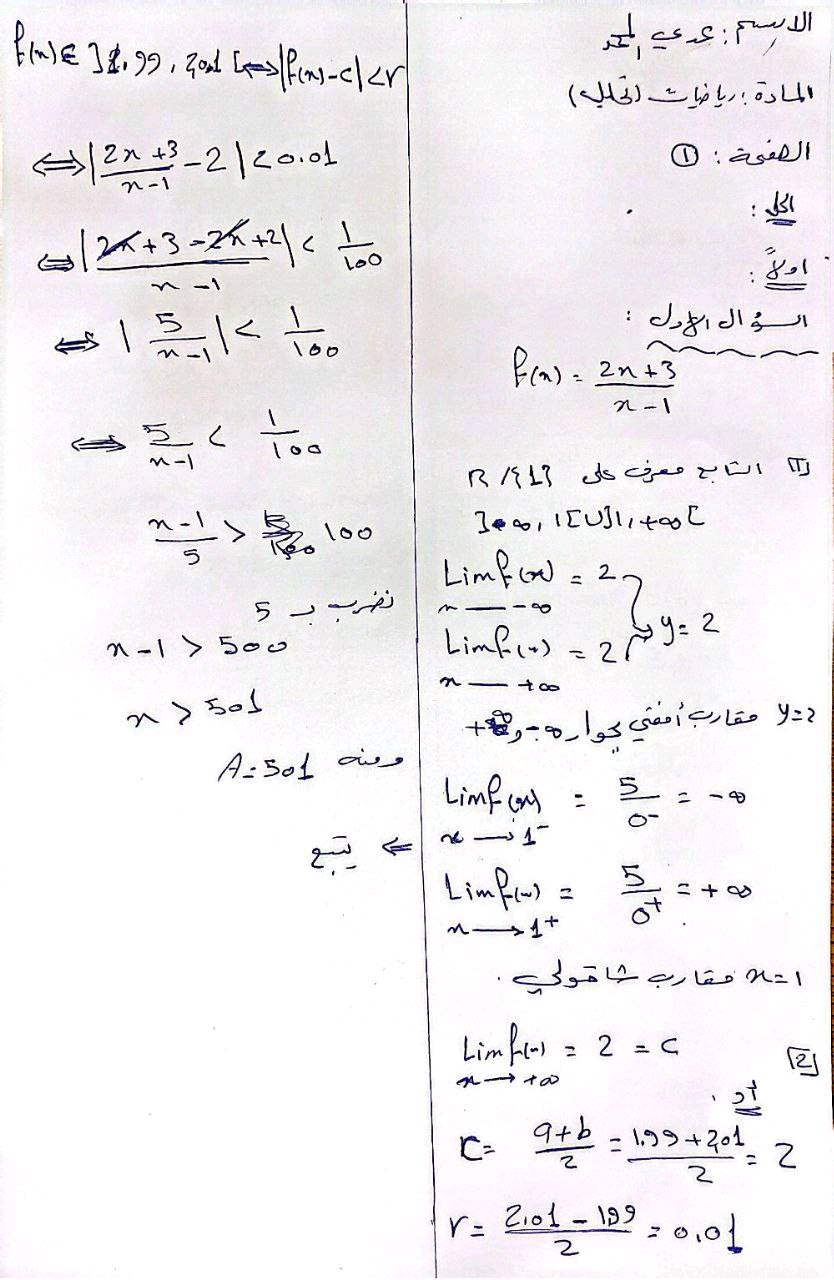 الاسم: عدي
المادة: رياضيات (تحليل)
الصفحة: ①
الحل:
اولاً:
السؤال الاول:
f(x) = \frac{2x+3}{x-1}
1] التابع معرف على R/{1}
]-∞, 1[∪]1, +∞[
Lim f(x) = 2
x → -∞
Lim f(x) = 2
x → +∞
y = 2
y=2 مقارب أفقي بجوار -∞ و +∞
Lim f(x) = \frac{5}{0^-} = -∞
x → 1^-
Lim f(x) = \frac{5}{0^+} = +∞
x → 1^+
x=1 مقارب شاقولي.
2] Lim f(x) = 2 = c
x → +∞
c = \frac{a+b}{2} = \frac{1.99+2,01}{2} = 2
r = \frac{2,01 - 199}{2} = 0,01
f(x) ∈ ]1.99, 2,01[ ⇔ |f(x) - c| < r
⇔ |\frac{2x+3}{x-1} - 2| < 0.01
⇔ |\frac{2x+3-2x+2}{x-1}| < \frac{1}{100}
⇔ |\frac{5}{x-1}| < \frac{1}{100}
⇔ \frac{5}{x-1} < \frac{1}{100}
\frac{x-1}{5} > 100
نضرب بـ 5
x-1 > 500
x > 501
ومنه A=501
يتبع ⇐